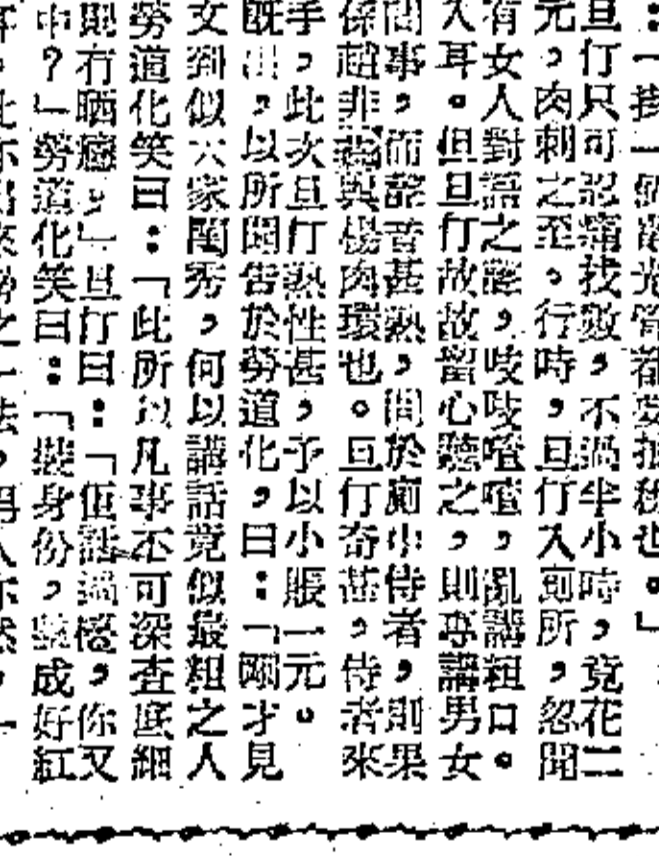 一個光管都要也。」
旦仃只可認痛找數，不過半小時，竟花二
元，肉刺之至。行時，旦仃入廁所，忽聞
有女人對語之聲，吱吱喳喳，亂講粗口。
入耳。但旦仃故故留心聽之，則專講男女
間事，而聲音甚熟，問於廁中侍者，則果
係趙非燕與楊肉環也。旦仃奇甚，侍者來
手，此次旦仃熱性甚，予以小賬一元。
既出，以所聞告於勞道化，曰：「剛才見
文到似六家閨秀，何以講話竟似最粗之人
勞道化笑曰：「此所以凡事不可深查底細
則冇晒癮。」旦仃曰：「佢話過檯，你又
？」勞道化笑曰：「裝身份，整成好紅